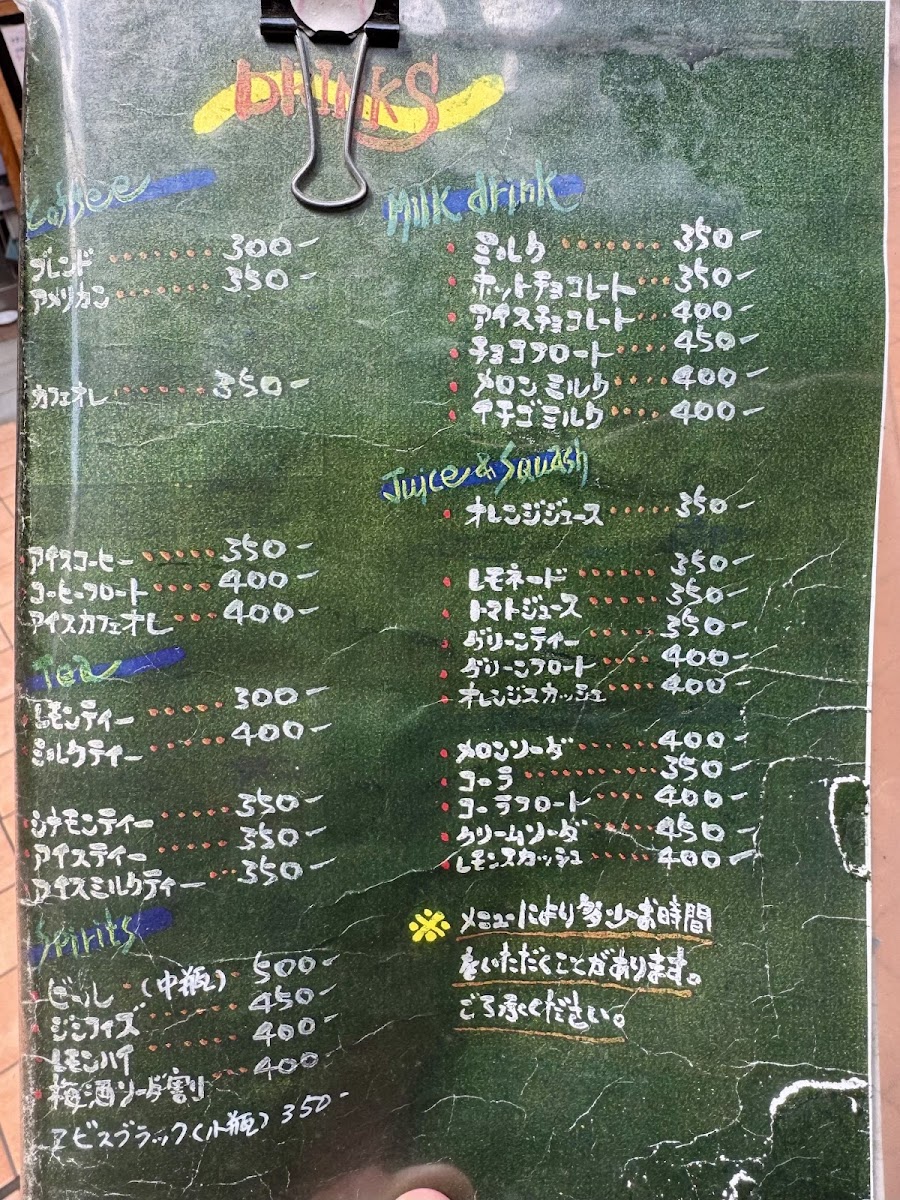 DRINKS
Coffee
ブレンド 300-
アメリカン 350-
カフェオレ 350-
アイスコーヒー 350-
コーヒーフロート 400-
アイスカフェオレ 400-
Tea
レモンティー 300-
ミルクティー 400-
シナモンティー 350-
アイスティー 350-
アイスミルクティー 350-
Spirits
ビール (中瓶) 500-
ジンフィズ 450-
レモンハイ 400-
梅酒ソーダ割 400-
ヱビスブラック(小瓶) 350-
Milk drink
ミルク 350-
ホットチョコレート 350-
アイスチョコレート 400-
チョコフロート 450-
メロンミルク 400-
イチゴミルク 400-
Juice & Squash
オレンジジュース 350-
レモネード 350-
トマトジュース 350-
グリーンティー 350-
グリーンフロート 400-
オレンジスカッシュ 400-
メロンソーダ 400-
コーラ 350-
コーラフロート 400-
クリームソーダ 450-
レモンスカッシュ 400-
※メニューにより多少お時間
をいただくことがあります。
ごろ承ください。